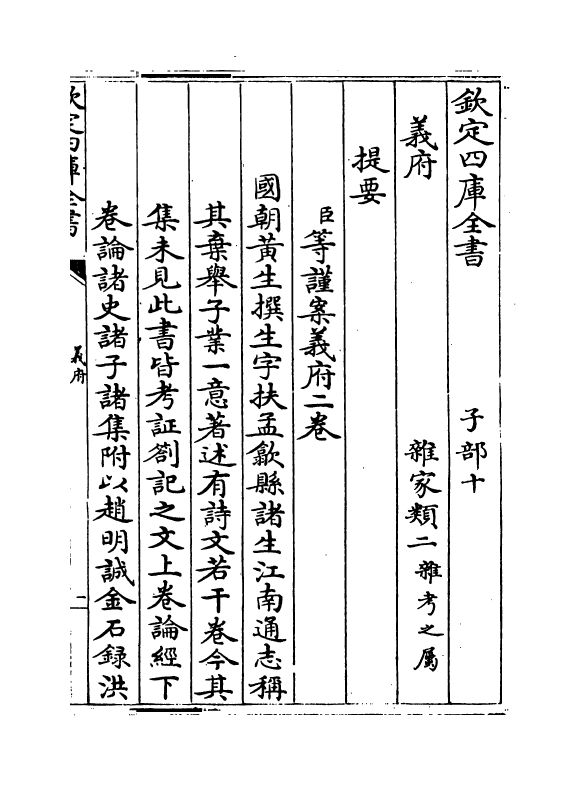 欽定四庫全書　子部十
義府　雜家類二雜考之屬
提要
臣等謹案義府二卷
國朝黃生撰生字扶孟歙縣諸生江南通志稱
其棄舉子業一意著述有詩文若干卷今其
集未見此書皆考証劄記之文上卷論經下
卷論諸史諸子諸集附以趙明誠金石録洪
欽定四庫全書
義府